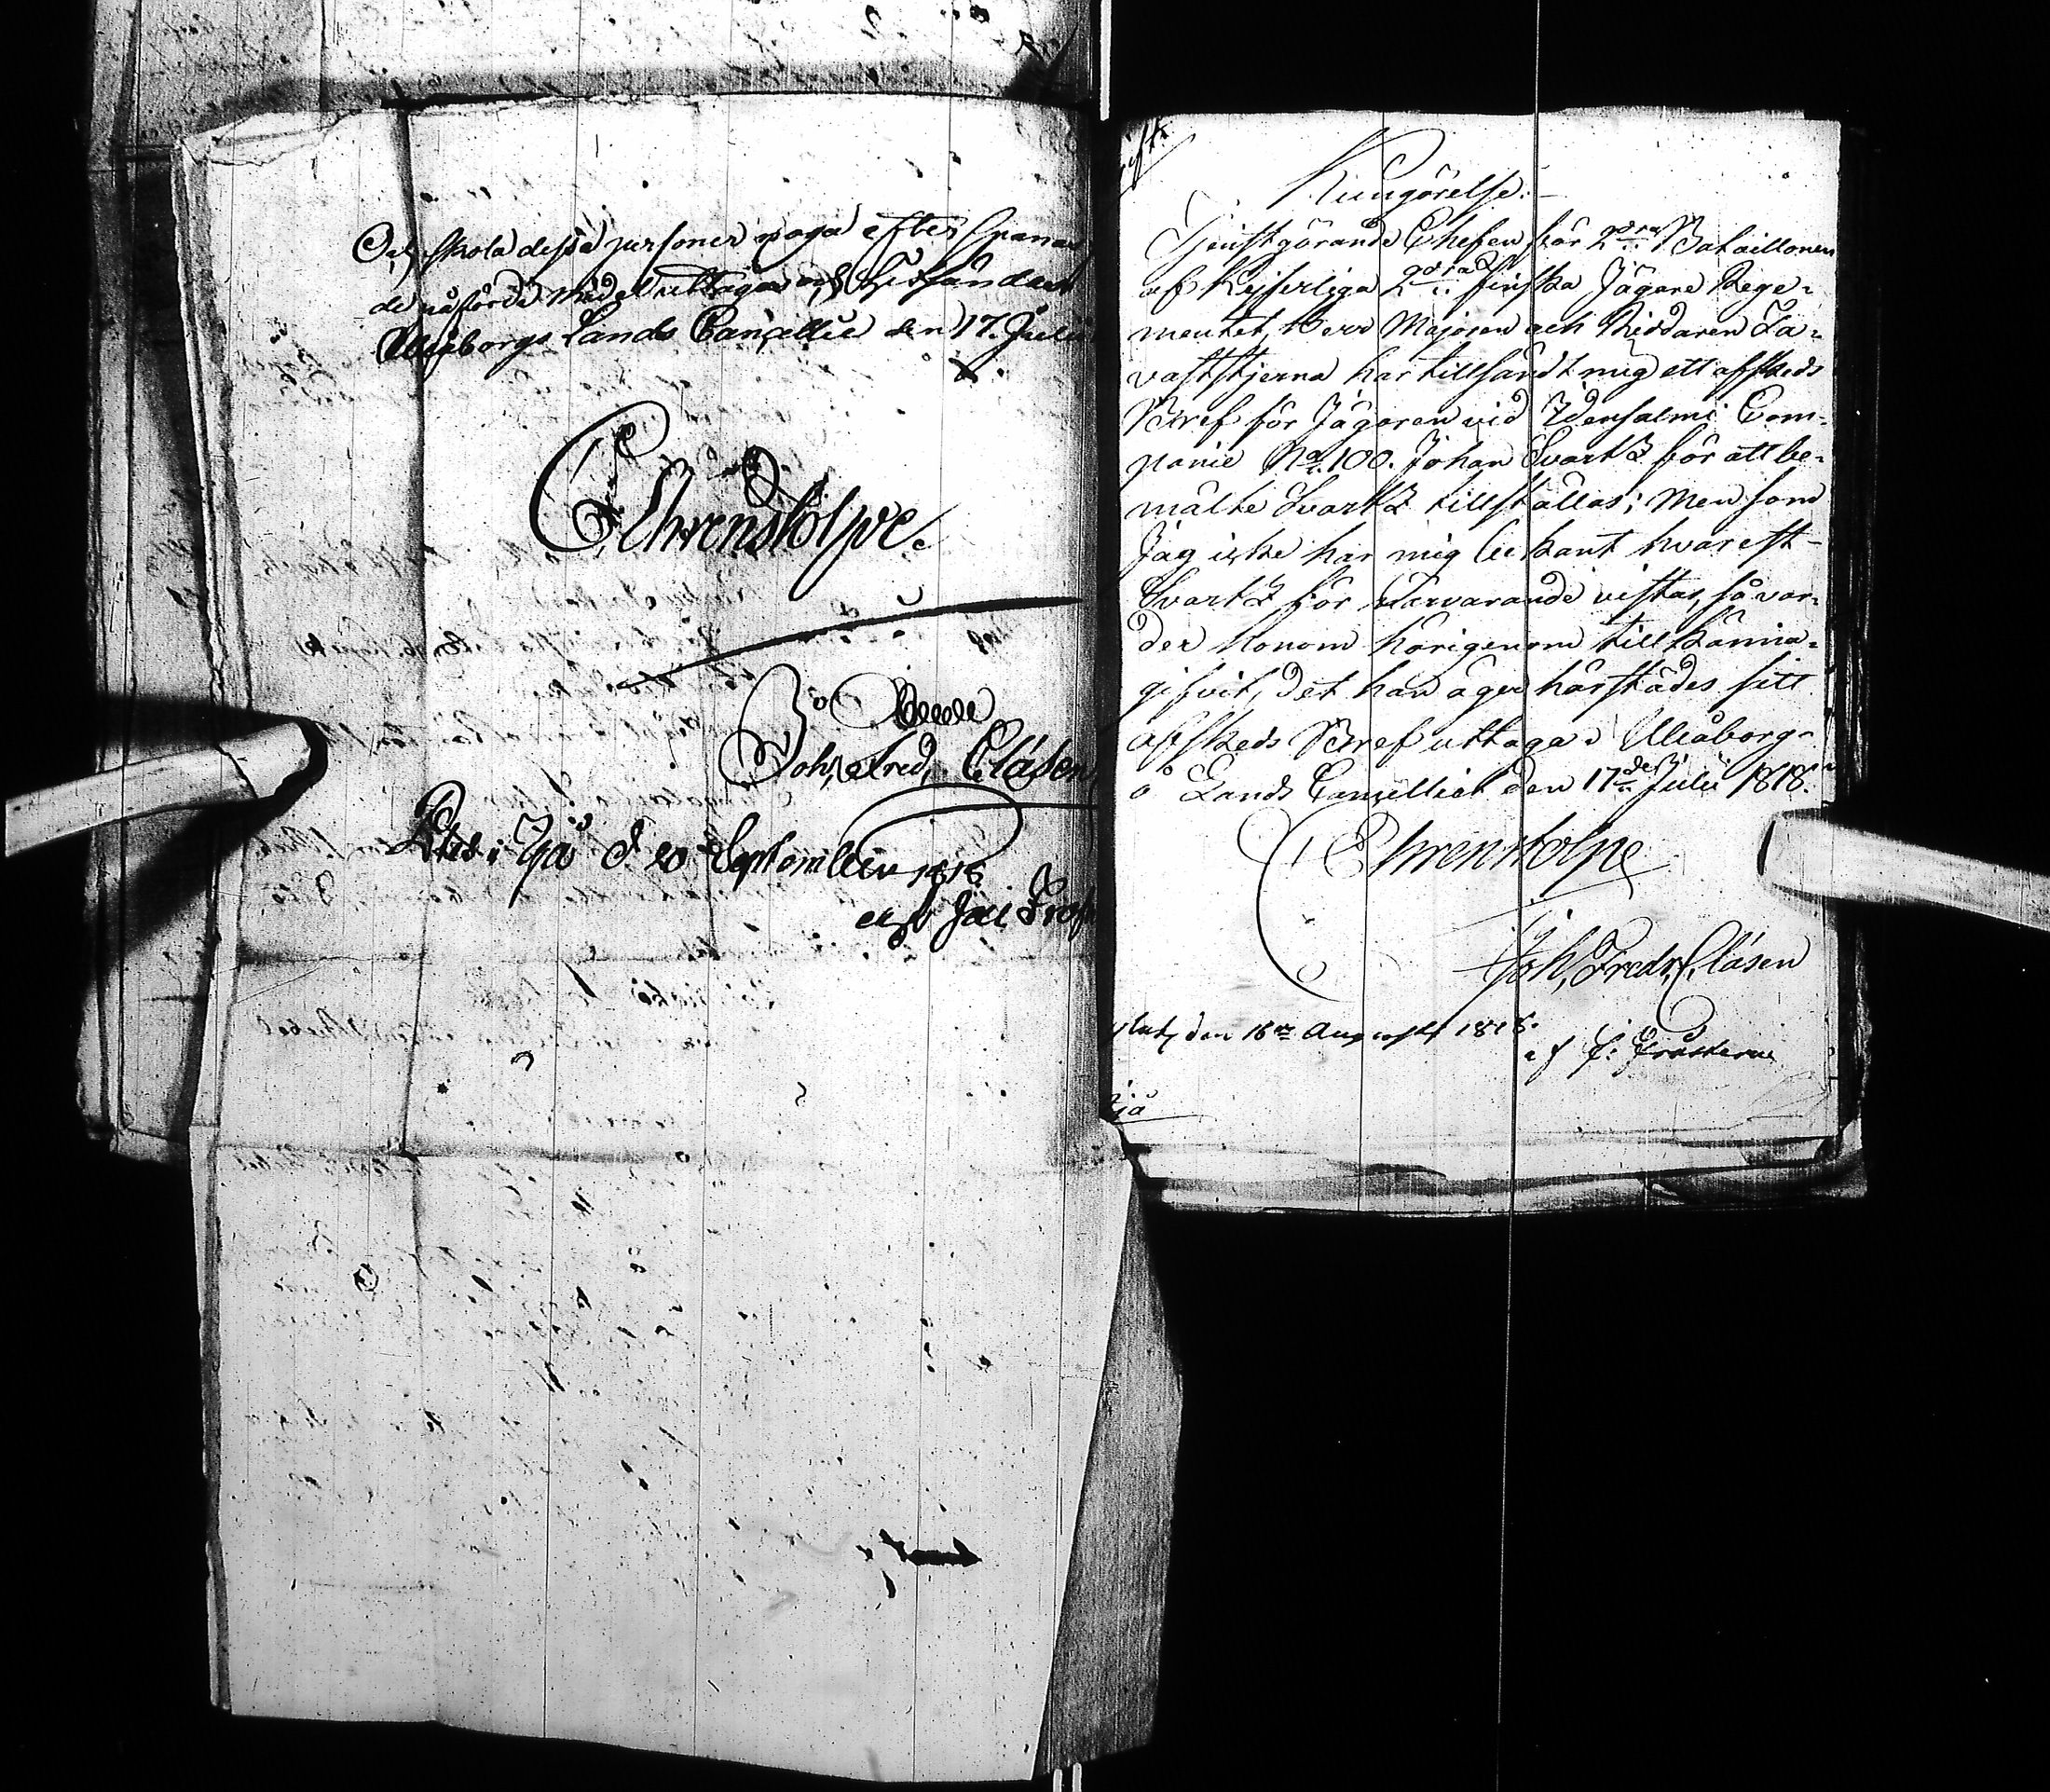 Och skola dessa personer noga efterspanas
de påförde medel uttagas och hitsändas
Uleåborgs Lands Cancellie den 17. Julii
C Ehrenstolpe.
Joh, Fred, Clásen
i Ijå d 20 September 1818
Kungörelse:
Tjenstgörande Chefen för 2dra Bataillonen
af Kejserliga 2dra finska Jägare Rege-
mentet, Herr Majoren och Riddaren Ta-
vaststjerna har tillsändt mig ett afskeds
Bref för Jägaren vid Idensalmi Com-
panie No. 100. Johan Svartz för att be-
mälte Svartz tillställas; Men som
Jag icke har mig bekant hvarest
Svartz för närvarande vistas, så var-
der honom härigenom tillkänna-
gifvit, det han äger härstädes sitt
afskeds Bref uttaga. Uleåborg
å Lands Cancelliet den 17de Julii 1818.
C Ehrenstolpe
Joh, Fredr, Clásen
den 16 Augusti 1818.
af